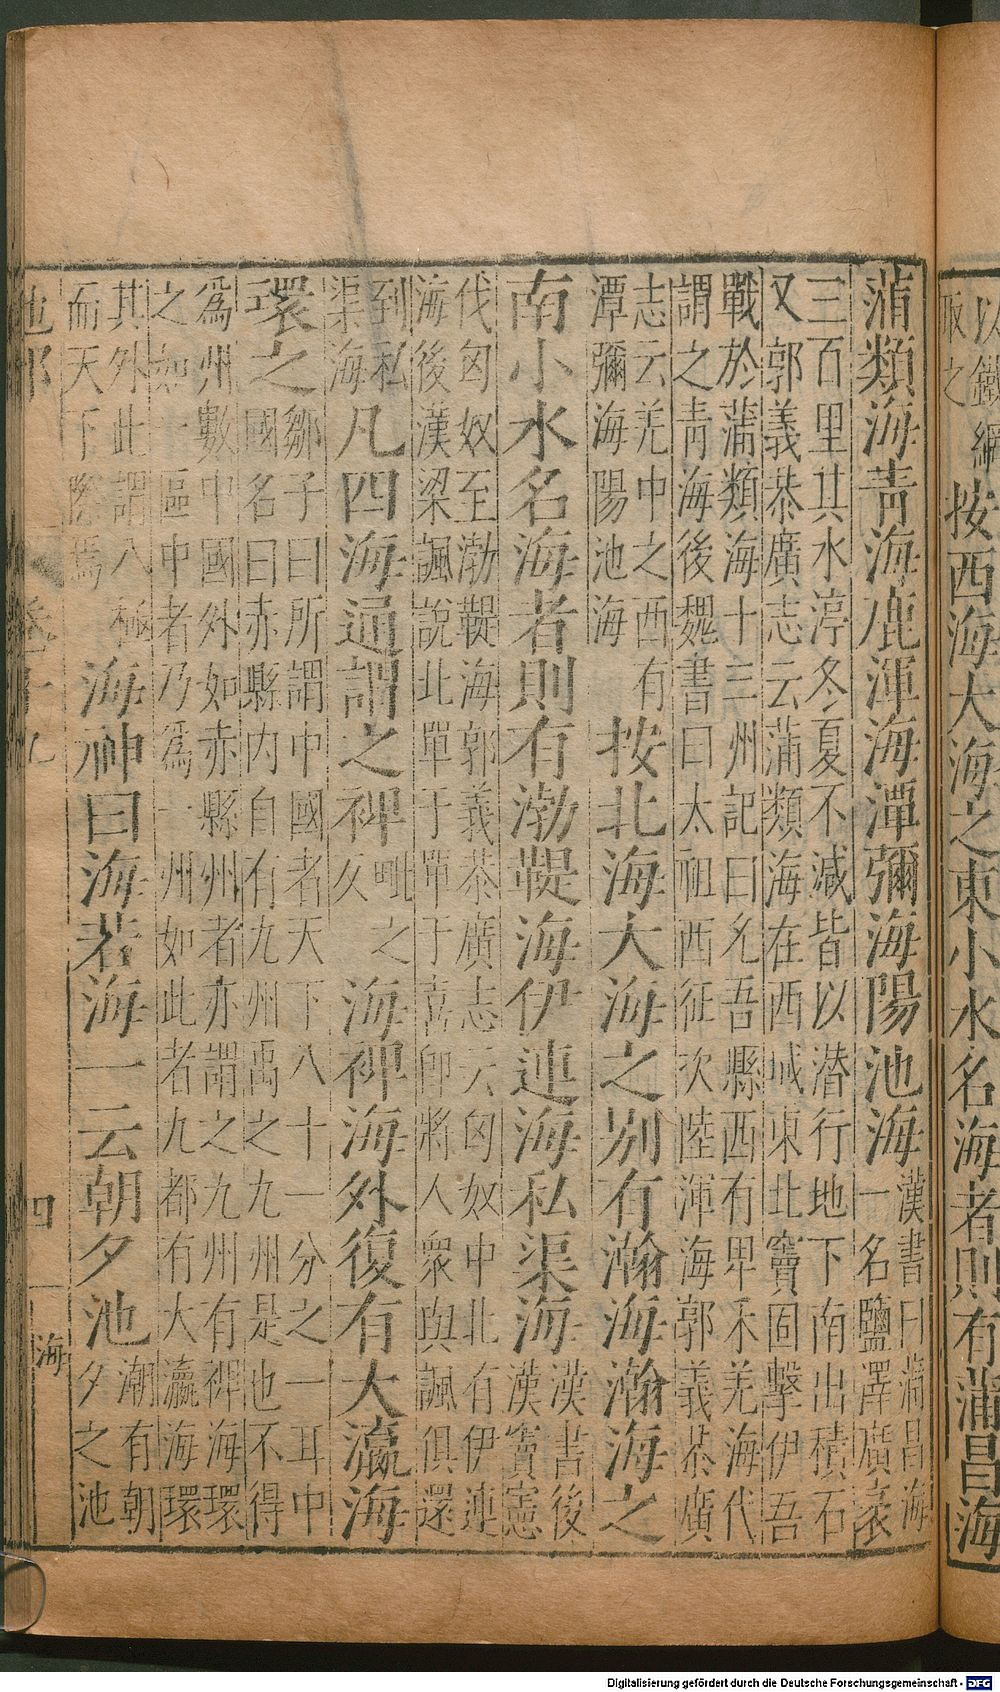 以鐵網
取之
按西海大海之東小水名海者則有蒲昌海
蒲類海青海鹿渾海潭彌海陽池海
漢書曰蒲昌海
一名鹽澤廣袤
三百里其水渟冬夏不減皆以潛行地下南出積石
又郭義恭廣志云蒲類海在西域東北竇固擊伊吾
戰於蒲類海十三州記曰允吾縣西有卑禾羌海代
謂之青海後魏書曰太祖西征次陸渾海郭義恭廣
志云羌中之西有
潭彌海陽池海
按北海大海之別有瀚海瀚海之
南小水名海者則有渤鞮海伊連海私渠海
漢書後
漢竇憲
伐匈奴至渤鞮海郭義恭廣志云匈奴中北有伊連
海後漢梁諷說北單于單于喜卽將人衆與諷俱還
到私
渠海
凡四海通謂之裨
毗之
久
海裨海外復有大瀛海
環之
鄒子曰所謂中國者天下八十一分之一耳中
國名曰赤縣內自有九州禹之九州是也不得
爲州數中國外如赤縣州者亦謂之九州有裨海環
之如一區中者乃爲一州如此者九都有大瀛海環
其外此謂八極
而天下際焉
海神曰海若海一云朝夕池
潮有朝
夕之池
地部
卷十九
四
海
Digitalisierung gefördert durch die Deutsche Forschungsgemeinschaft - DFG